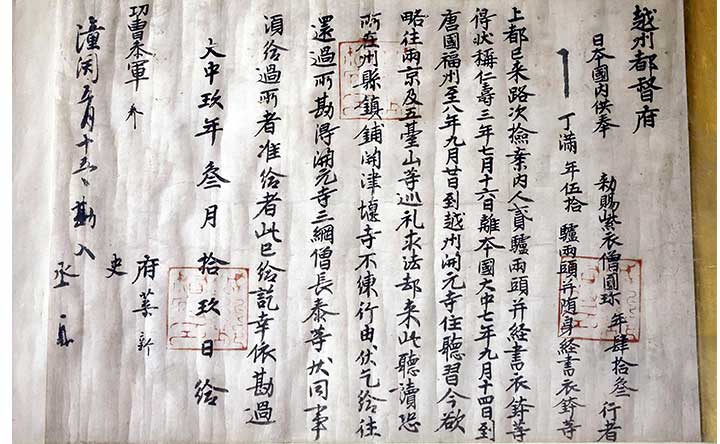 越州都督府
日本國内供奉　勅賜紫衣僧圓珎年肆拾叁行者
丁滿年伍拾驢兩頭并随身經書衣鉢等
上都已来路次檢案内人貳驢兩頭并經書衣鉢等
得状稱仁壽三年七月十六日離夲國大中七年九月十四日到
唐國福州至八年九月廿日到越州開元寺住聽習今欲
略往兩京及五臺山等巡礼求法却来此聽讀恐
所在州縣鎮鋪關津堰寺不練行由伏乞給往
還過所勘得開元寺三綱僧長泰等状同事
湏給過所者准給者此已給訖幸依勘過
大中玖年叁月拾玖日給
府葉新
功曹叅軍
史
潼関五月十五日勘入
丞